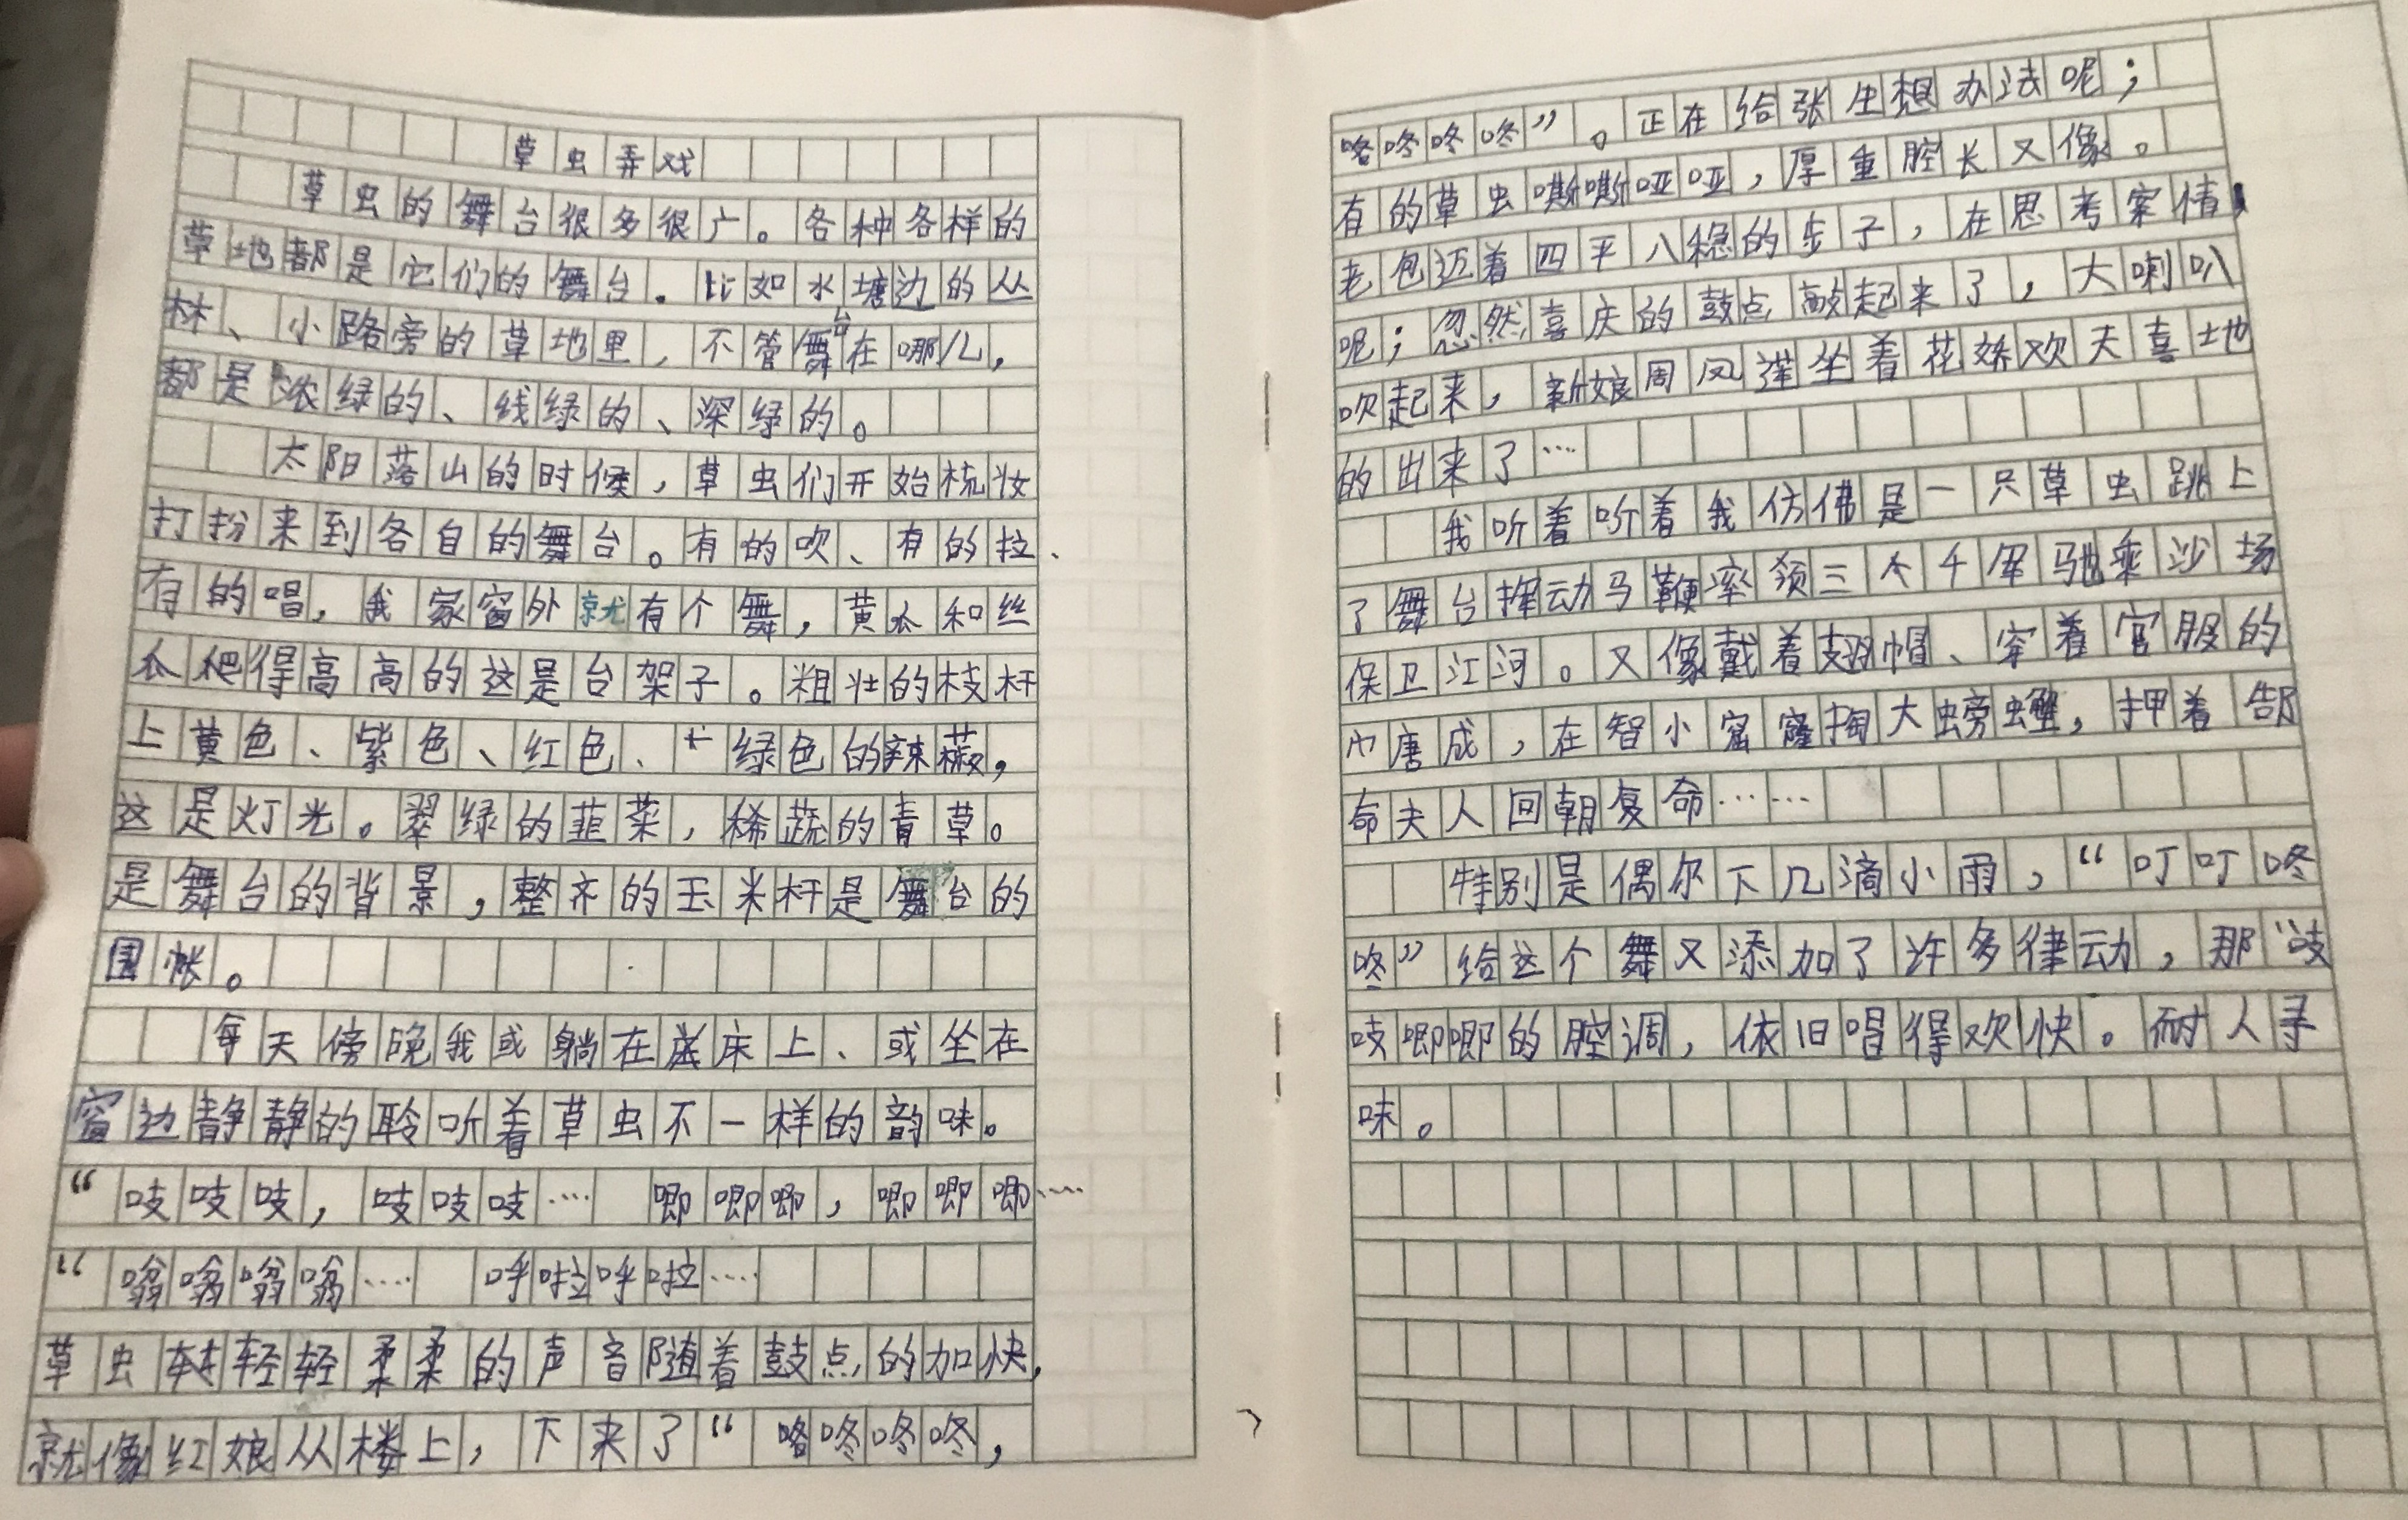 草虫弄戏
草虫的舞台很多很广。各种各样的
草地都是它们的舞台。比如水塘边的丛
林、小路旁的草地里，不管舞台在哪儿，
都是浓绿的、线绿的、深绿的。
太阳落山的时候，草虫们开始梳妆
打扮来到各自的舞台。有的吹、有的拉、
有的唱，我家窗外就有个舞，黄瓜和丝
瓜爬得高高的这是台架子。粗壮的枝杆
上黄色、紫色、红色、绿色的辣椒，
这是灯光。翠绿的韭菜，稀蔬的青草。
是舞台的背景，整齐的玉米杆是舞台的
围帐。
每天傍晚我或躺在床上、或坐在
窗边静静的聆听着草虫不一样的韵味。
“吱吱吱，吱吱吱…… 唧唧唧，唧唧唧……
“嗡嗡嗡嗡…… 呼啦呼啦……
草虫轻轻柔柔的声音随着鼓点的加快，
就像红娘从楼上，下来了“咯咚咚咚，
咯咚咚咚”。正在给张生想办法呢；
有的草虫嘶嘶哑哑，厚重腔长又像。
老包迈着四平八稳的步子，在思考案情，
呢；忽然喜庆的鼓点敲起来了，大喇叭
吹起来，新娘周凤莲坐着花娇欢天喜地
的出来了…
我听着听着我仿佛是一只草虫跳上
了舞台挥动马鞭率领三个千军驰乘沙场
保卫江河。又像戴着翅帽、穿着官服的
唐成，在智小窟窿掏大螃蟹，押着郜
命夫人回朝复命……
特别是偶尔下几滴小雨，“叮叮咚
咚”给这个舞又添加了许多律动，那“吱
吱唧唧的腔调，依旧唱得欢快。耐人寻
味。